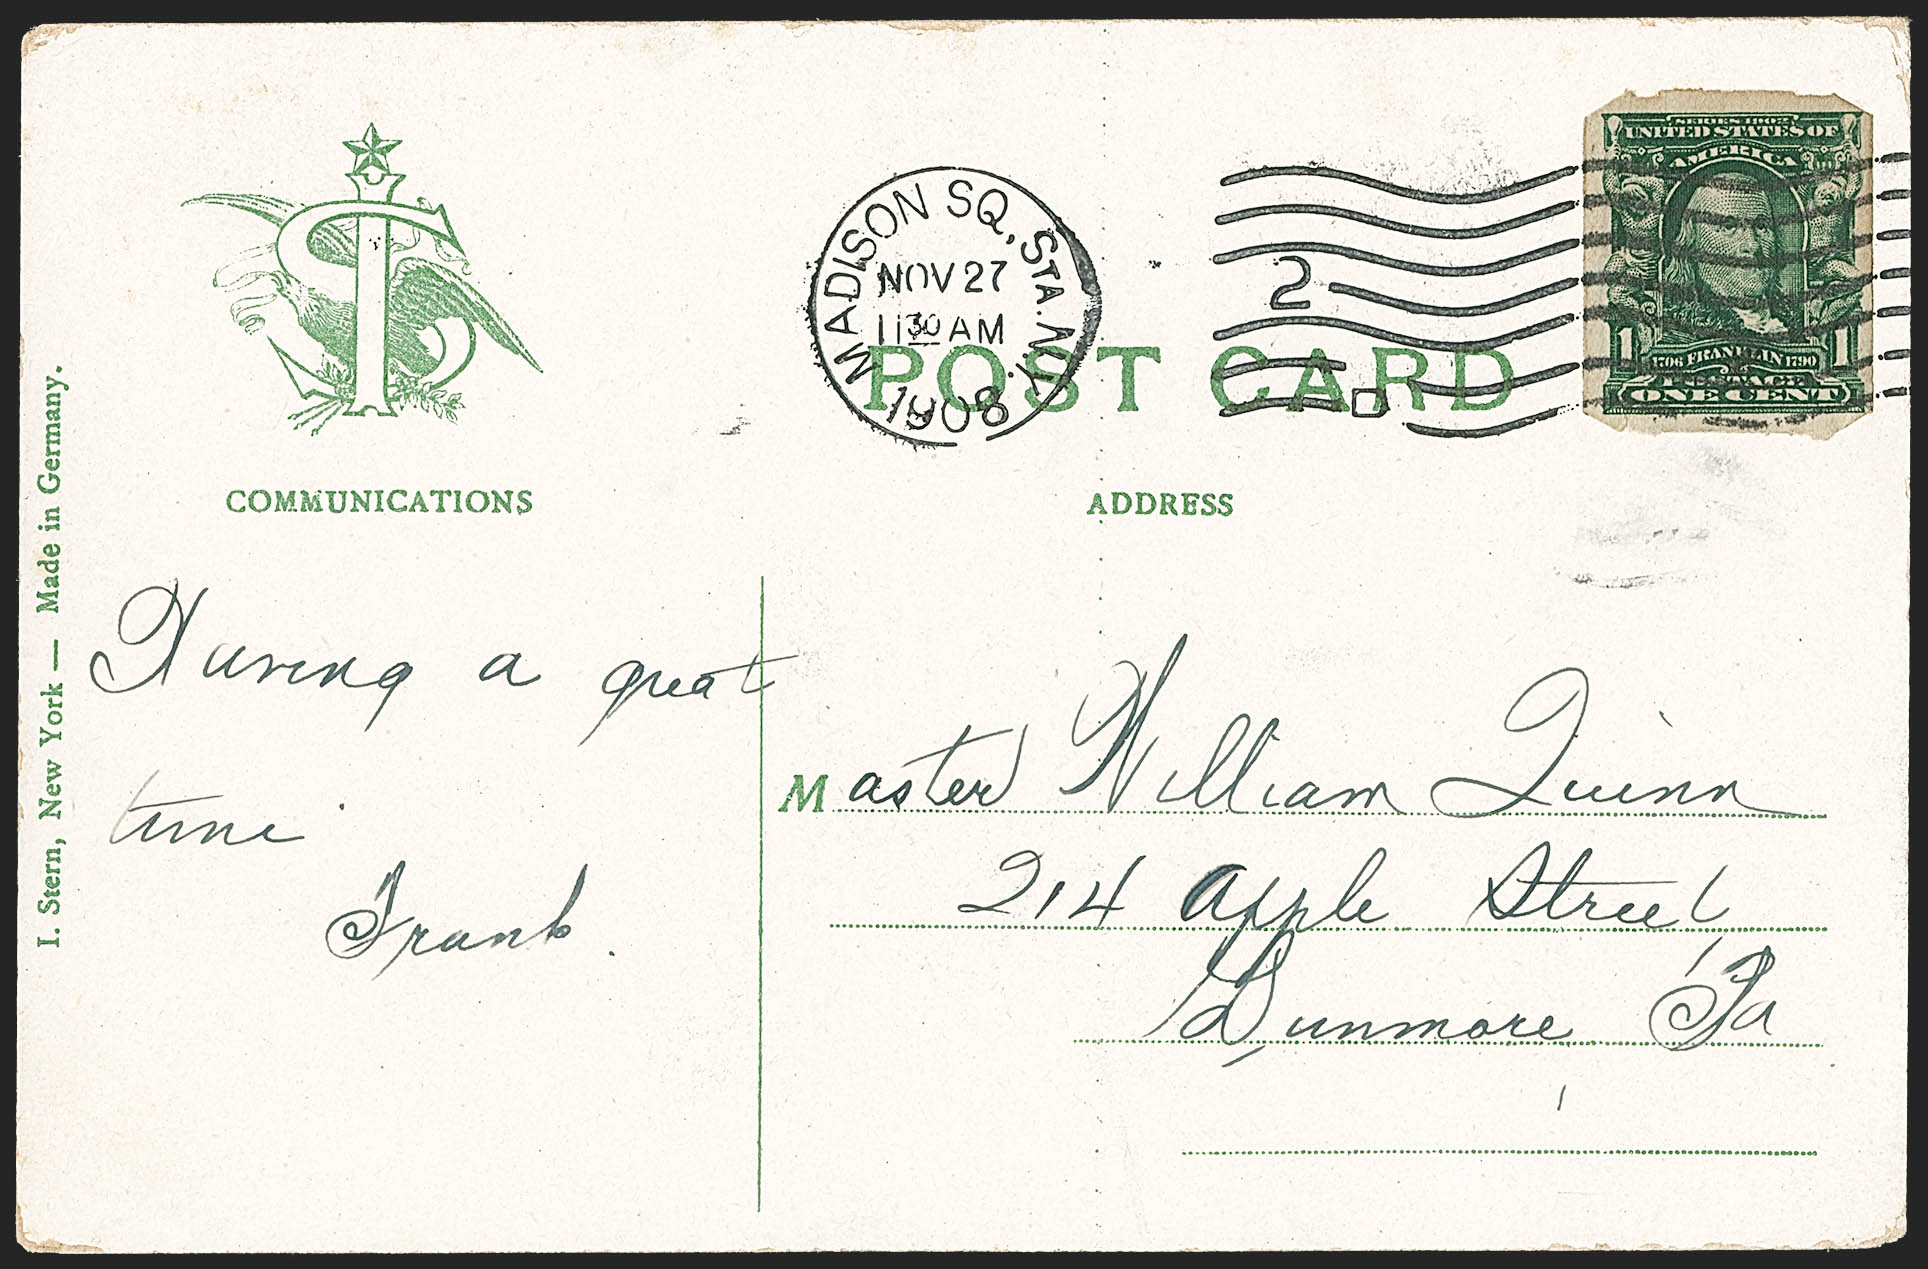 MADISON SQ. STA. N.Y.
NOV 27
11 30 AM
1908
2
SERIES 1902
UNITED STATES OF
AMERICA
1 1706 FRANKLIN 1790 1
POSTAGE
ONE CENT
POST CARD
COMMUNICATIONS
ADDRESS
I. Stern, New York — Made in Germany.
Having a great
time.
Frank.
Master William Quinn
214 Apple Street,
Dunmore Pa